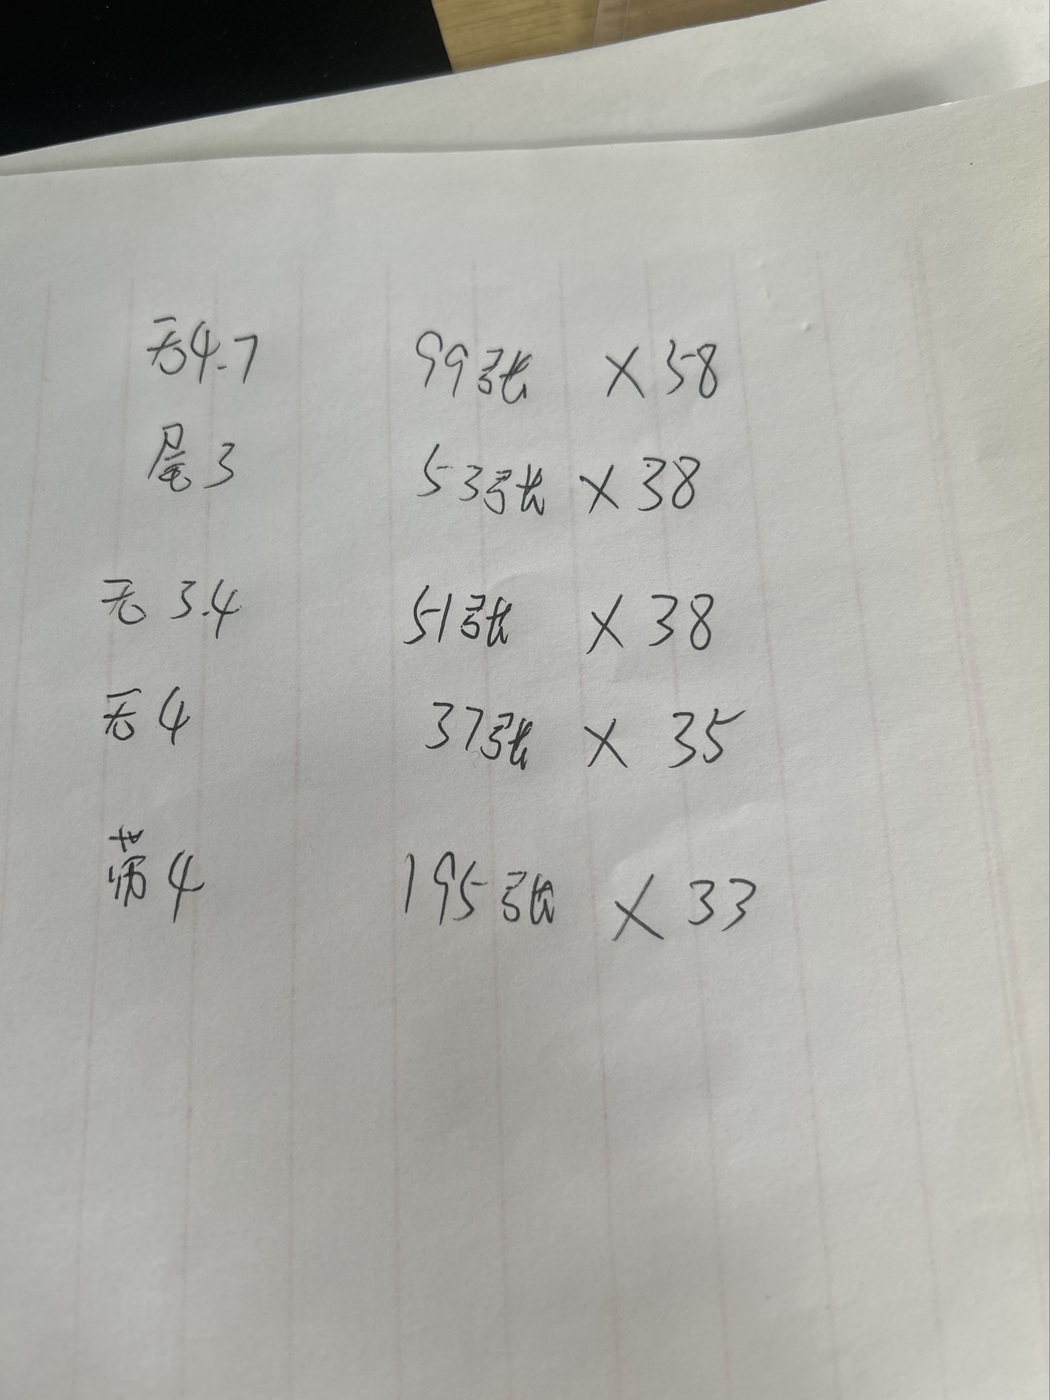 无4.7 99张 ×58
尾3 53张 ×38
无 3.4 51张 ×38
无4 37张 × 35
带4 195张 ×33